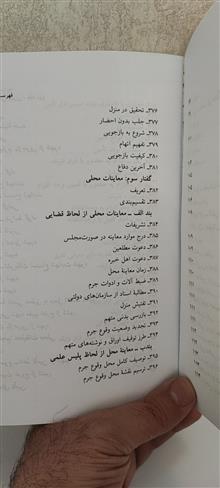 فهرست
۳۷۶ـ تحقیق در منزل
۳۷۷ـ جلب بدون احضار
۳۷۸ـ شروع به بازجویی
۳۷۹ـ تفهیم اتهام
۳۸۰ـ کیفیت بازجویی
۳۸۱ـ آخرین دفاع
گفتار سوم: معاینات محلی
۳۸۲ـ تعریف
۳۸۳ـ تقسیم‌بندی
بند الف ـ معاینات محلی از لحاظ قضایی
۳۸۴ـ تشریفات
۳۸۵ـ درج موارد معاینه در صورت‌مجلس
۳۸۶ـ دعوت مطلعین
۳۸۷ـ دعوت اهل خبره
۳۸۸ـ زمان معاینهٔ محل
۳۸۹ـ ضبط آلات و ادوات جرم
۳۹۰ـ مطالبهٔ اسناد از سازمان‌های دولتی
۳۹۱ـ تفتیش منزل
۳۹۲ـ بازرسی بدنی متهم
۳۹۳ـ تجدید وضعیت وقوع جرم
۳۹۴ـ طرز توقیف اوراق و نوشته‌های متهم
بند ب ـ معاینهٔ محل از لحاظ پلیس علمی
۳۹۵ـ توصیف کامل محل وقوع جرم
۳۹۶ـ ترسیم نقشهٔ محل وقوع جرم